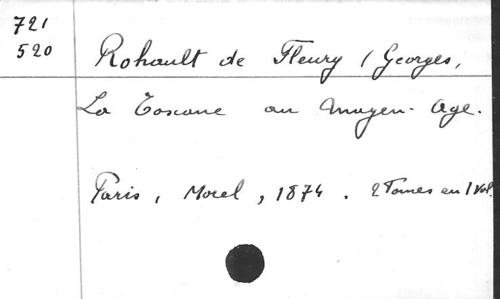 721
520
Rohault de Fleury (Georges,
La Toscane au Moyen-Age.
Paris, Morel, 1874. 2 Tomes en 1 Vol.